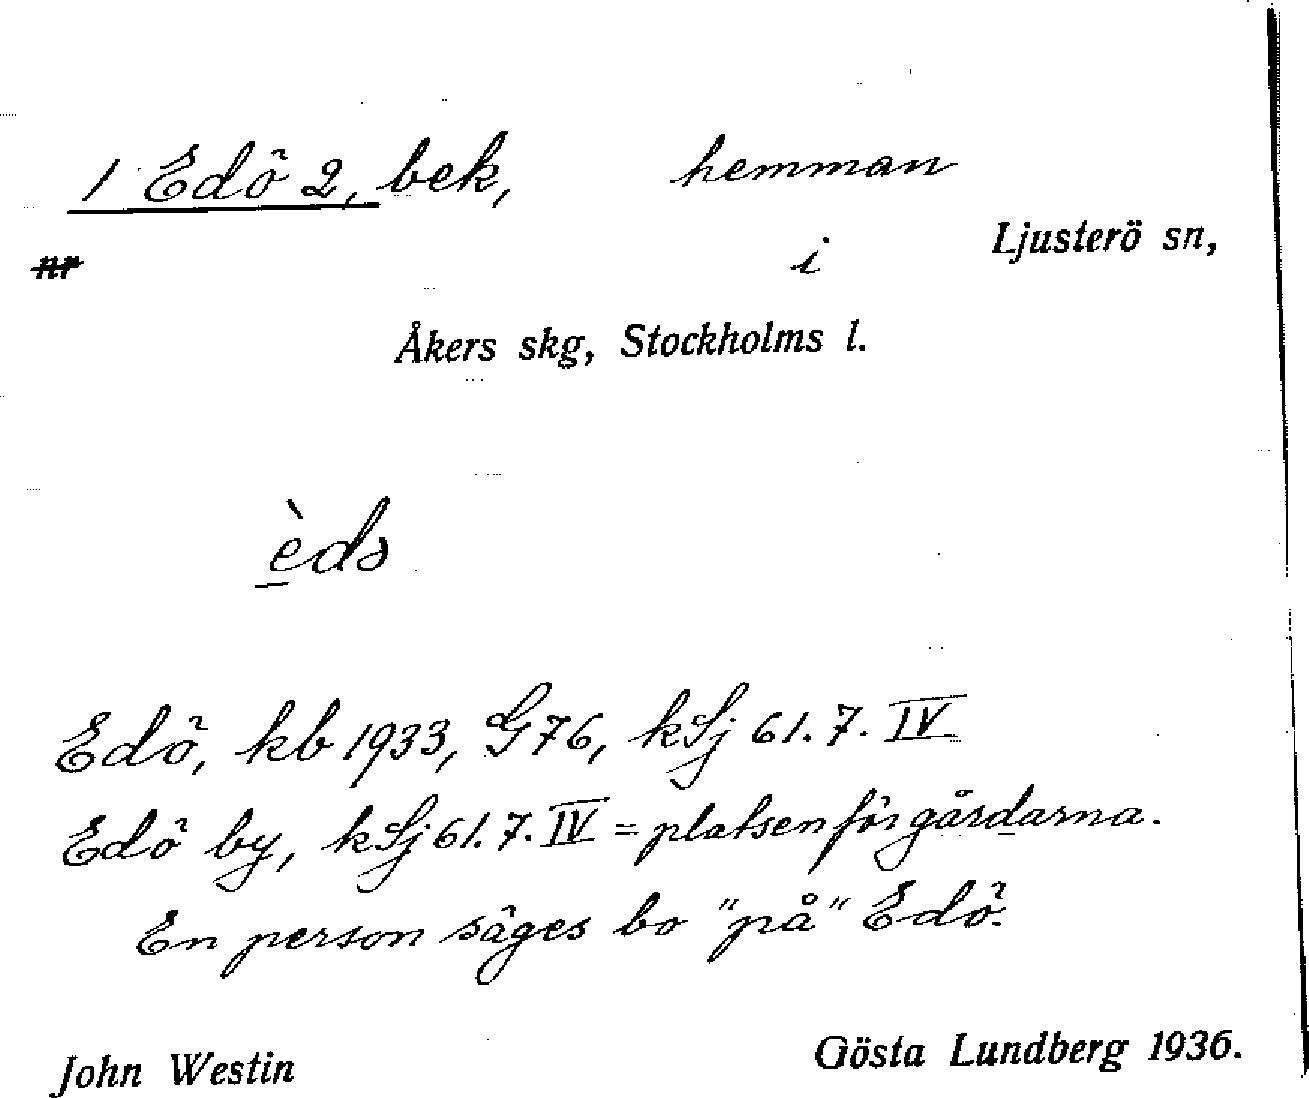 1 Edö 2, bek, hemman
nr i Ljusterö sn,
Åkers skg, Stockholms l.
èdə
Edö, kb 1933, G 76, kSj 61.7.IV
Edö by, kSj 61.7.IV = platsen för gårdarna.
En person säges bo "på" Edö.
John Westin Gösta Lundberg 1936.